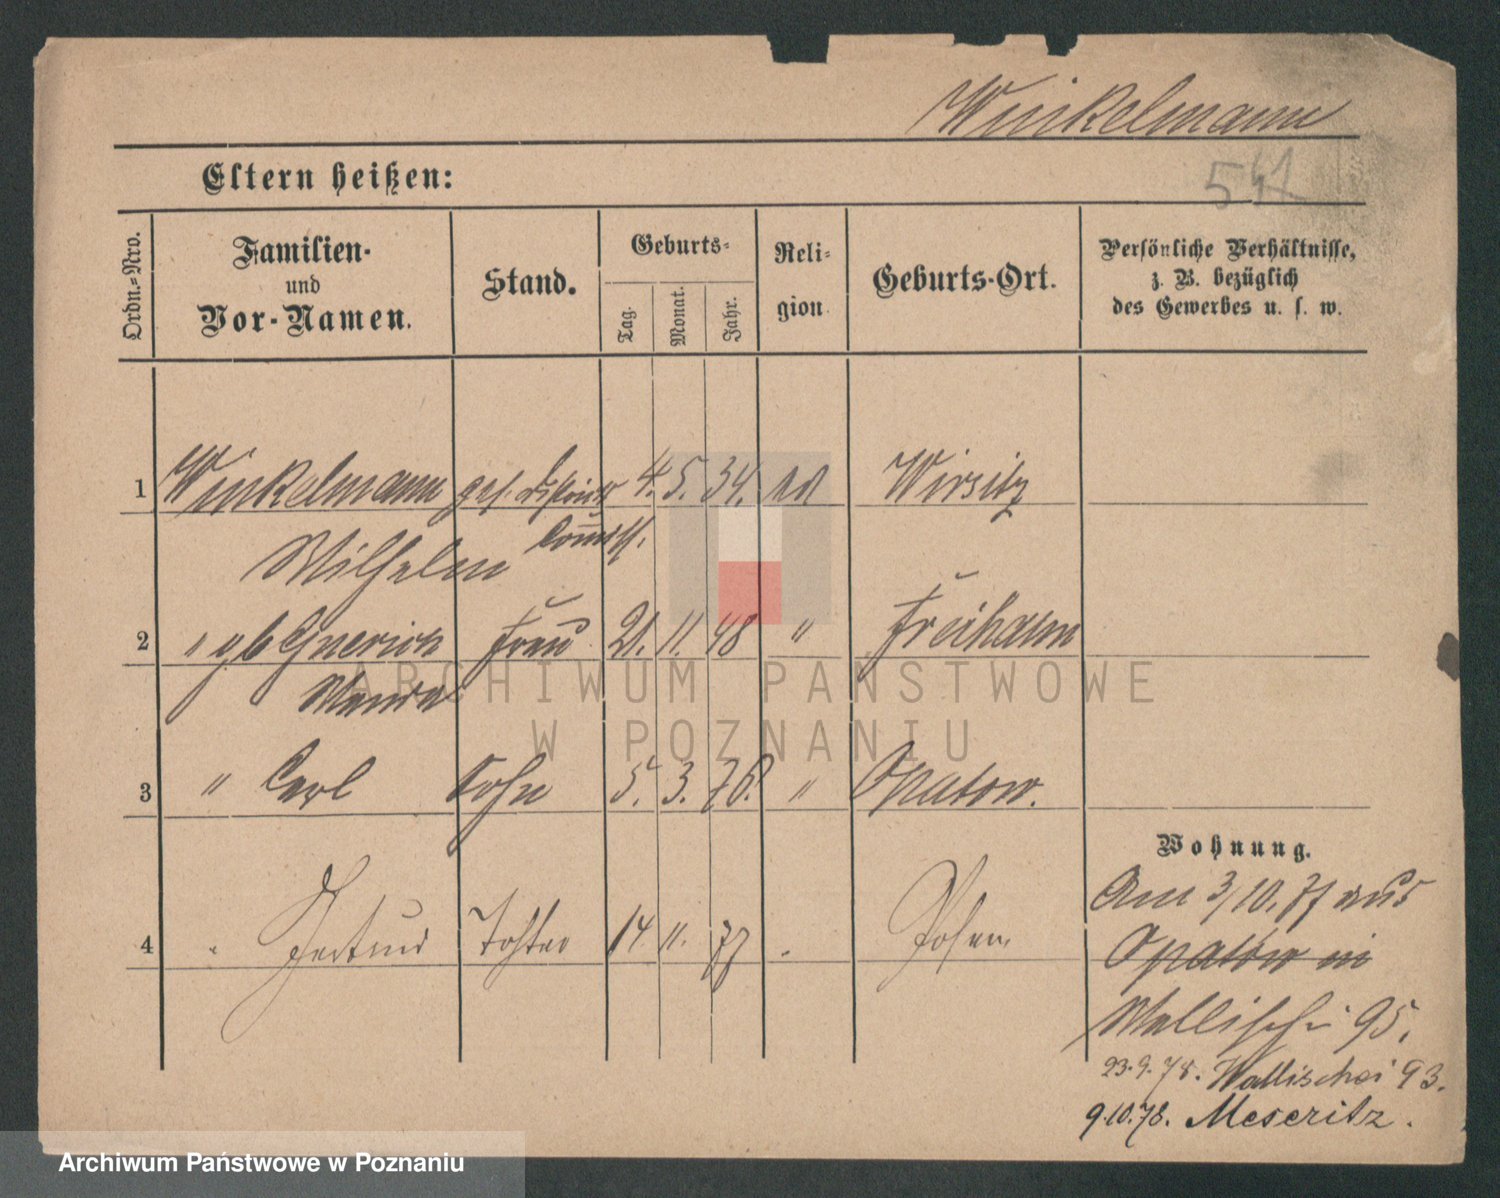 Winkelmann
Eltern heißen:
541
Ordn.-Nro.
Familien-
und
Vor-Namen.
Stand.
Geburts-
Tag.
Monat.
Jahr.
Reli-
gion
Geburts-Ort.
Persönliche Verhältnisse,
z. B. bezüglich
des Gewerbes u. s. w.
1 Winkelmann 4. 5. 34. Wirsitz
Wilhelm
2 " gb Frau 21. 11. 48 " Freihann
Wanda
3 " Carl Sohn 5. 3. 76. " Opatow.
4 " Gertrud Tochter 14 11. 77 " Posen
Wohnung.
Am 3/10. 77 aus
Opatow in
Wallischei 95.
23.9.78. Wallischei 93.
9.10.78. Meseritz.
ARCHIWUM PAŃSTWOWE
W POZNANIU
Archiwum Państwowe w Poznaniu